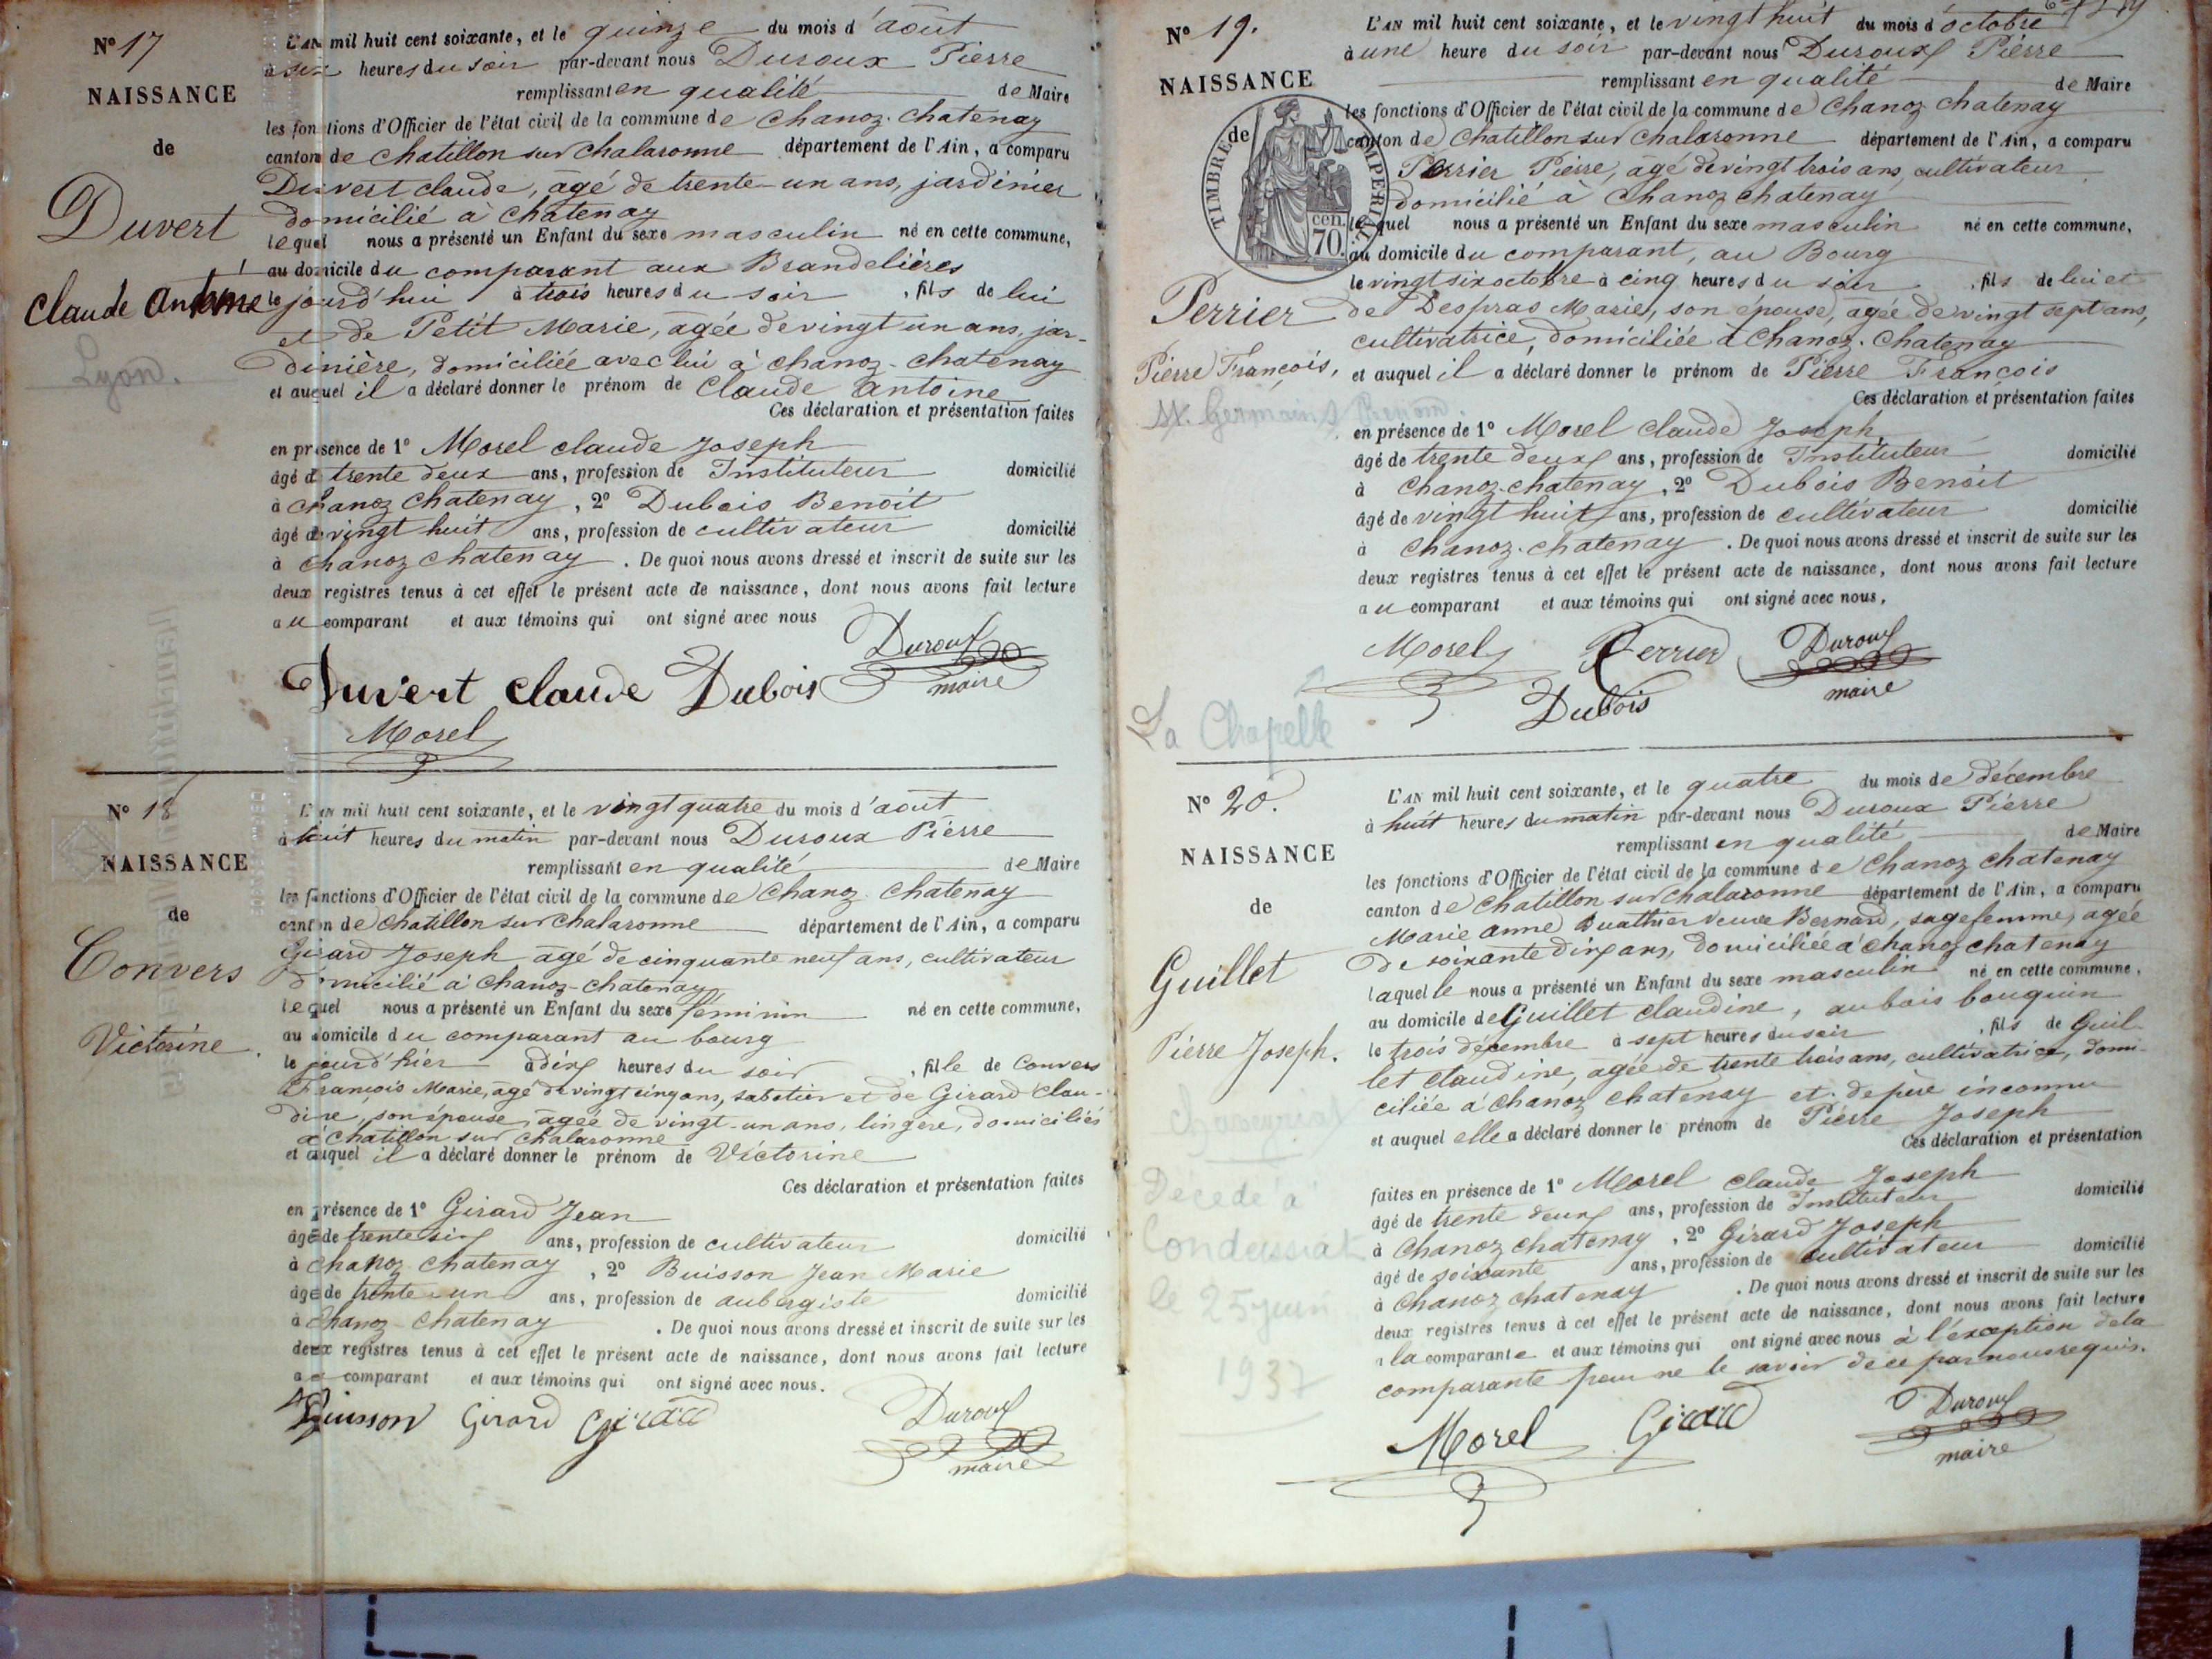 N° 17
NAISSANCE
de
Duvert
Claude Antoine
Lyon.
L'AN mil huit cent soixante, et le quinze du mois d'août
à six heures du soir par-devant nous Duroux Pierre
remplissant en qualité de Maire
les fonctions d'Officier de l'état civil de la commune de Chanoz-Chatenay
canton de Chatillon sur Chalaronne département de l'Ain, a comparu
Duvert Claude, âgé de trente-un ans, jardinier
domicilié à Chatenay
lequel nous a présenté un Enfant du sexe masculin né en cette commune,
au domicile du comparant aux Brandelières
le jourd'hui à trois heures du soir, fils de lui
et de Petit Marie, âgée de vingt un ans, jar-
dinière, domiciliée avec lui à Chanoz-Chatenay
et auquel il a déclaré donner le prénom de Claude Antoine
Ces déclaration et présentation faites
en présence de 1° Morel Claude Joseph
âgé de trente deux ans, profession de Instituteur domicilié
à Chanoz Chatenay, 2° Dubois Benoit
âgé de vingt huit ans, profession de cultivateur domicilié
à Chanoz Chatenay. De quoi nous avons dressé et inscrit de suite sur les
deux registres tenus à cet effet le présent acte de naissance, dont nous avons fait lecture
au comparant et aux témoins qui ont signé avec nous
Duroux
maire
Duvert Claude Dubois
Morel
N° 18
NAISSANCE
de
Convers
Victorine.
L'AN mil huit cent soixante, et le vingt quatre du mois d'août
à huit heures du matin par-devant nous Duroux Pierre
remplissant en qualité de Maire
les fonctions d'Officier de l'état civil de la commune de Chanoz Chatenay
canton de Chatillon sur Chalaronne département de l'Ain, a comparu
Girard Joseph âgé de cinquante neuf ans, cultivateur
domicilié à Chanoz-Chatenay
lequel nous a présenté un Enfant du sexe féminin né en cette commune,
au domicile du comparant au bourg
le jourd'hier à dix heures du soir, fille de Convers
François Marie, âgé de vingt cinq ans, sabotier et de Girard Clau-
dine, son épouse, âgée de vingt-un ans, lingère, domiciliés
à Chatillon sur Chalaronne
et auquel il a déclaré donner le prénom de Victorine
Ces déclaration et présentation faites
en présence de 1° Girard Jean
âgé de trente six ans, profession de cultivateur domicilié
à Chanoz Chatenay, 2° Buisson Jean Marie
âgé de trente-un ans, profession de aubergiste domicilié
à Chanoz-Chatenay. De quoi nous avons dressé et inscrit de suite sur les
deux registres tenus à cet effet le présent acte de naissance, dont nous avons fait lecture
au comparant et aux témoins qui ont signé avec nous.
Buisson Girard Girard
Duroux
maire
N° 19.
NAISSANCE
de
TIMBRE IMPERIAL
cen.
70.
Perrier
Pierre François,
St. Germain s/ Renom.
La Chapelle
L'AN mil huit cent soixante, et le vingt huit du mois d'octobre
à une heure du soir par-devant nous Duroux Pierre
remplissant en qualité de Maire
les fonctions d'Officier de l'état civil de la commune de Chanoz Chatenay
canton de Chatillon sur Chalaronne département de l'Ain, a comparu
Perrier Pierre, âgé de vingt trois ans, cultivateur
domicilié à Chanoz Chatenay
lequel nous a présenté un Enfant du sexe masculin né en cette commune,
au domicile du comparant, au Bourg
le vingt six octobre à cinq heures du soir, fils de lui et
de Despras Marie, son épouse, âgée de vingt sept ans,
cultivatrice, domiciliée à Chanoz-Chatenay
et auquel il a déclaré donner le prénom de Pierre François
Ces déclaration et présentation faites
en présence de 1° Morel Claude Joseph
âgé de trente deux ans, profession de Instituteur domicilié
à Chanoz-Chatenay, 2° Dubois Benoit
âgé de vingt huit ans, profession de cultivateur domicilié
à Chanoz-Chatenay. De quoi nous avons dressé et inscrit de suite sur les
deux registres tenus à cet effet le présent acte de naissance, dont nous avons fait lecture
au comparant et aux témoins qui ont signé avec nous,
Morel Perrier Duroux
maire
Dubois
N° 20.
NAISSANCE
de
Guillet
Pierre Joseph.
Décédé à
Condeissiat
le 25 juin
1937
L'AN mil huit cent soixante, et le quatre du mois de décembre
à huit heures du matin par-devant nous Duroux Pierre
remplissant en qualité de Maire
les fonctions d'Officier de l'état civil de la commune de Chanoz Chatenay
canton de Chatillon sur Chalaronne département de l'Ain, a comparu
Marie Anne Buathier veuve Bernard, sage femme, âgée
de soixante dix ans, domiciliée à Chanoz Chatenay
laquelle nous a présenté un Enfant du sexe masculin né en cette commune,
au domicile de Guillet Claudine, au bois bouquin
le trois décembre à sept heures du soir, fils de Guil-
let Claudine, âgée de trente trois ans, cultivatrice, domi-
ciliée à Chanoz Chatenay et de père inconnu
et auquel elle a déclaré donner le prénom de Pierre Joseph
Ces déclaration et présentation
faites en présence de 1° Morel Claude Joseph
âgé de trente deux ans, profession de Instituteur domicilié
à Chanoz Chatenay, 2° Girard Joseph
âgé de soixante ans, profession de cultivateur domicilié
à Chanoz Chatenay. De quoi nous avons dressé et inscrit de suite sur les
deux registres tenus à cet effet le présent acte de naissance, dont nous avons fait lecture
à la comparante et aux témoins qui ont signé avec nous à l'exception de la
comparante pour ne le savoir de ce par nous requis.
Morel Girard Duroux
maire